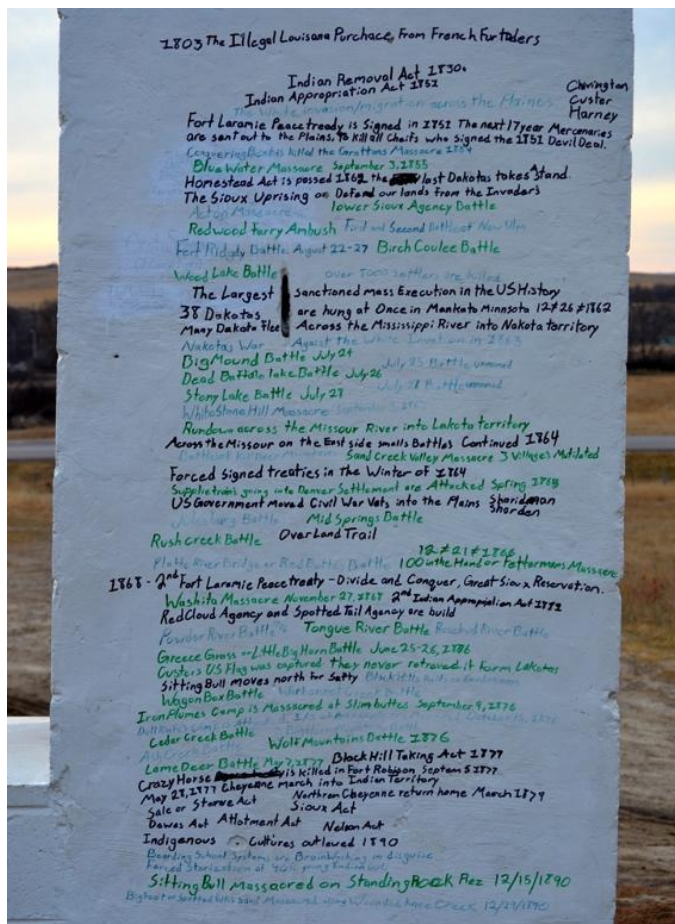 1803 The Illegal Louisana Purchace From French Furtaders
Indian Removal Act 1830.
Indian Appropriation Act 1851
Chivington
The White invasion/migration across the Plaines
Custer
Harney
Fort Laramie Peacetready is Signed in 1851 The next 17 year Mercenaries
are sent out to the Plains, to Kill all Cheifs who signed the 1851 Devil Deal.
killed the Grattons Massacre 1854
Blue Water Massacre September 3, 1855
Homestead Act is passed 1862 the last Dakotas takes A stand.
The Sioux Uprising or Defend our lands from the Invaders
Acton Massacre
lower Sioux Agency Battle
Redwood Farry Ambush First and Second Battle of New Ulm
Fort Ridgely Battle August 22-27 Birch Coulee Battle
Wood Lake Battle over settlers are killed
The Largest sanctioned mass Execution in the US History
38 Dakotas are hung at Once in Mankato Minnsota 12#26#1862
Many Dakota Flee Across the Mississippi River into Nakota territory
Nakotas War Against the White Invation in 1863
Big Mound Battle July 24
July 25 Battle unnamed
Dead Buffalo lake Battle July 26
July 28 Battle unnamed
Stony Lake Battle July 28
WhiteStone Hill Massacre September 3,
Rundown across the Missour River into Lakota territory
Across the Missour on the East side smalls Battles Continued 1864
Battle of Killdeer Mountain Sand Creek Valley Massacre 3 Villages Mutilated
Forced Signed treaties in the Winter of 1864
Supplie trains going into Denver Settlement are Attacked Spring
US Government Moved Civil War Vets into the Plains
Julesburg Battle Mid Springs Battle
Rush Creek Battle OverLand Trail
12#21#1866
Platte River Bridge or Red Buttes Battle 100 in the Hand or Fettermans Massacre
1868 - 2nd Fort Laramie Peacetreaty - Divide and Conquer, Great Sioux Reservation.
Washita Massacre November 27, 1868 2nd Indian Appropriation Act
RedCloud Agency and Spotted Tail Agency are build
Powder River Battle Tongue River Battle Rosebud River Battle
Greece Grass or Little Big Horn Battle June 25-26,
Custers US Flag was captured they never retreved it Form Lakotas
Sitting Bull moves north for Safty
WagonBox Battle
Iron Plumes Camp is Massacred at Slim buttes September 9, 1876
Cedar Creek Battle
Ash Creek Battle Wolf Mountains Battle 1876
Lame Deer Battle May 7, 1877 Black Hill Taking Act 1877
Crazy Horse is killed in Fort Robison Septem 5 1877
May 28, 1877 Cheyenne march into Indian Territory
Northren Cheyenne return home March 1879
Sale or Starve Act Sioux Act
Dawes Act Attotment Act Nelson Act
Indigenous Cultures outlawed 1890
Boarding School Systems are BrainWashing in disguise
Forced Sterization of young Indian
Sitting Bull Massacred on Standing Rock Rez 12/15/1890
Bigfoot or Spotted Massacred along Wounded Knee Creek 12/29/1890